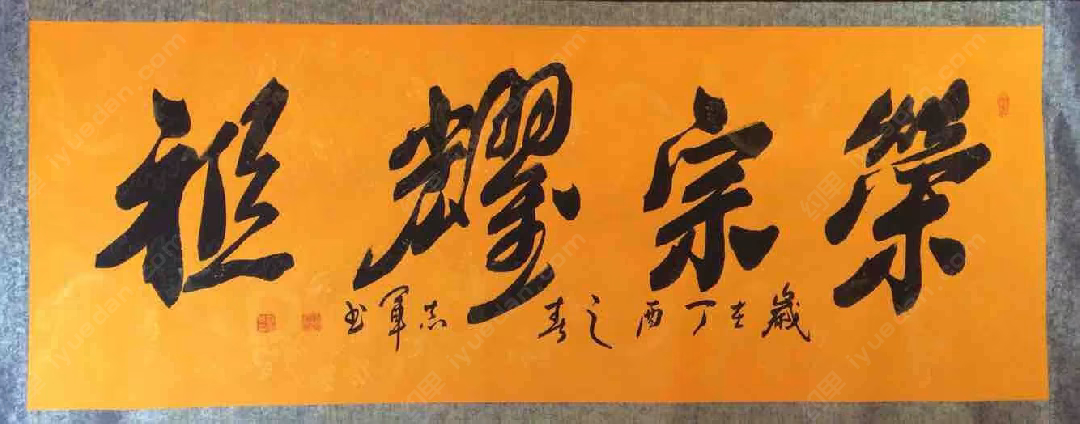 榮宗耀祖
歲在丁酉之春 志軍书